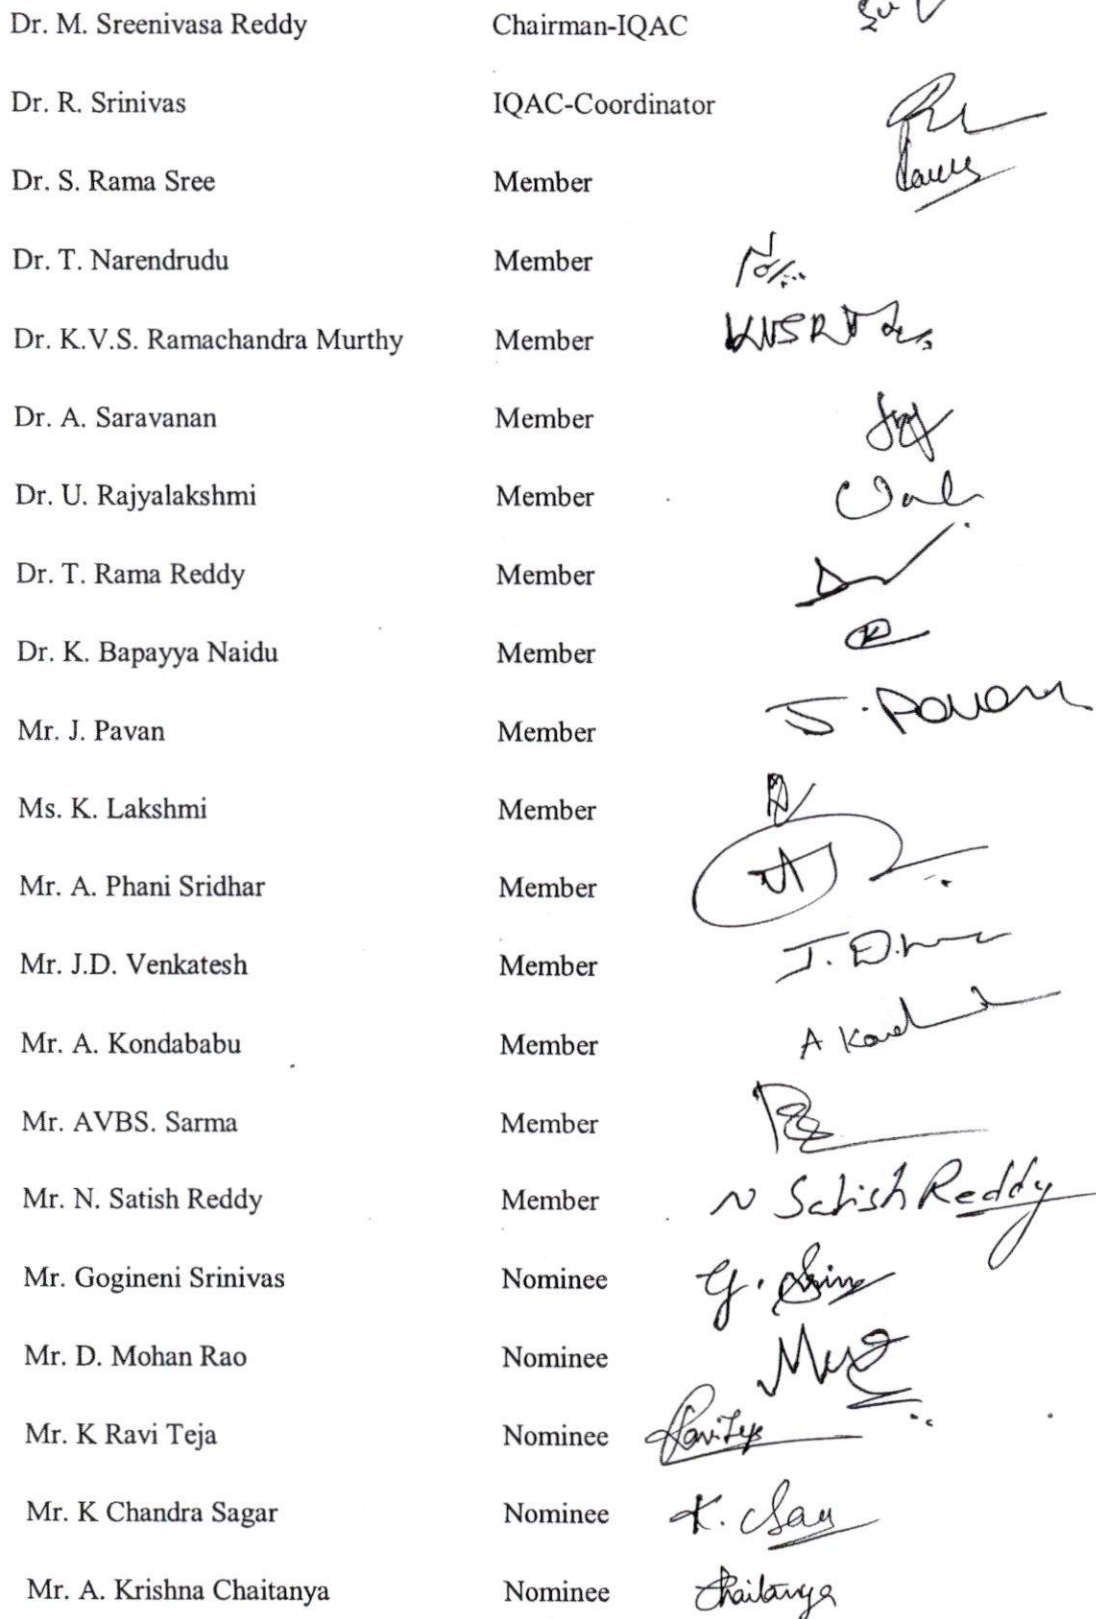 Dr. M. Sreenivasa Reddy Chairman-IQAC
Dr. R. Srinivas IQAC-Coordinator
Dr. S. Rama Sree Member
Dr. T. Narendrudu Member
Dr. K.V.S. Ramachandra Murthy Member
Dr. A. Saravanan Member
Dr. U. Rajyalakshmi Member
Dr. T. Rama Reddy Member
Dr. K. Bapayya Naidu Member
Mr. J. Pavan Member J. Pavan
Ms. K. Lakshmi Member
Mr. A. Phani Sridhar Member
Mr. J.D. Venkatesh Member
Mr. A. Kondababu Member
Mr. AVBS. Sarma Member
Mr. N. Satish Reddy Member N Satish Reddy
Mr. Gogineni Srinivas Nominee
Mr. D. Mohan Rao Nominee
Mr. K Ravi Teja Nominee
Mr. K Chandra Sagar Nominee
Mr. A. Krishna Chaitanya Nominee Chaitanya